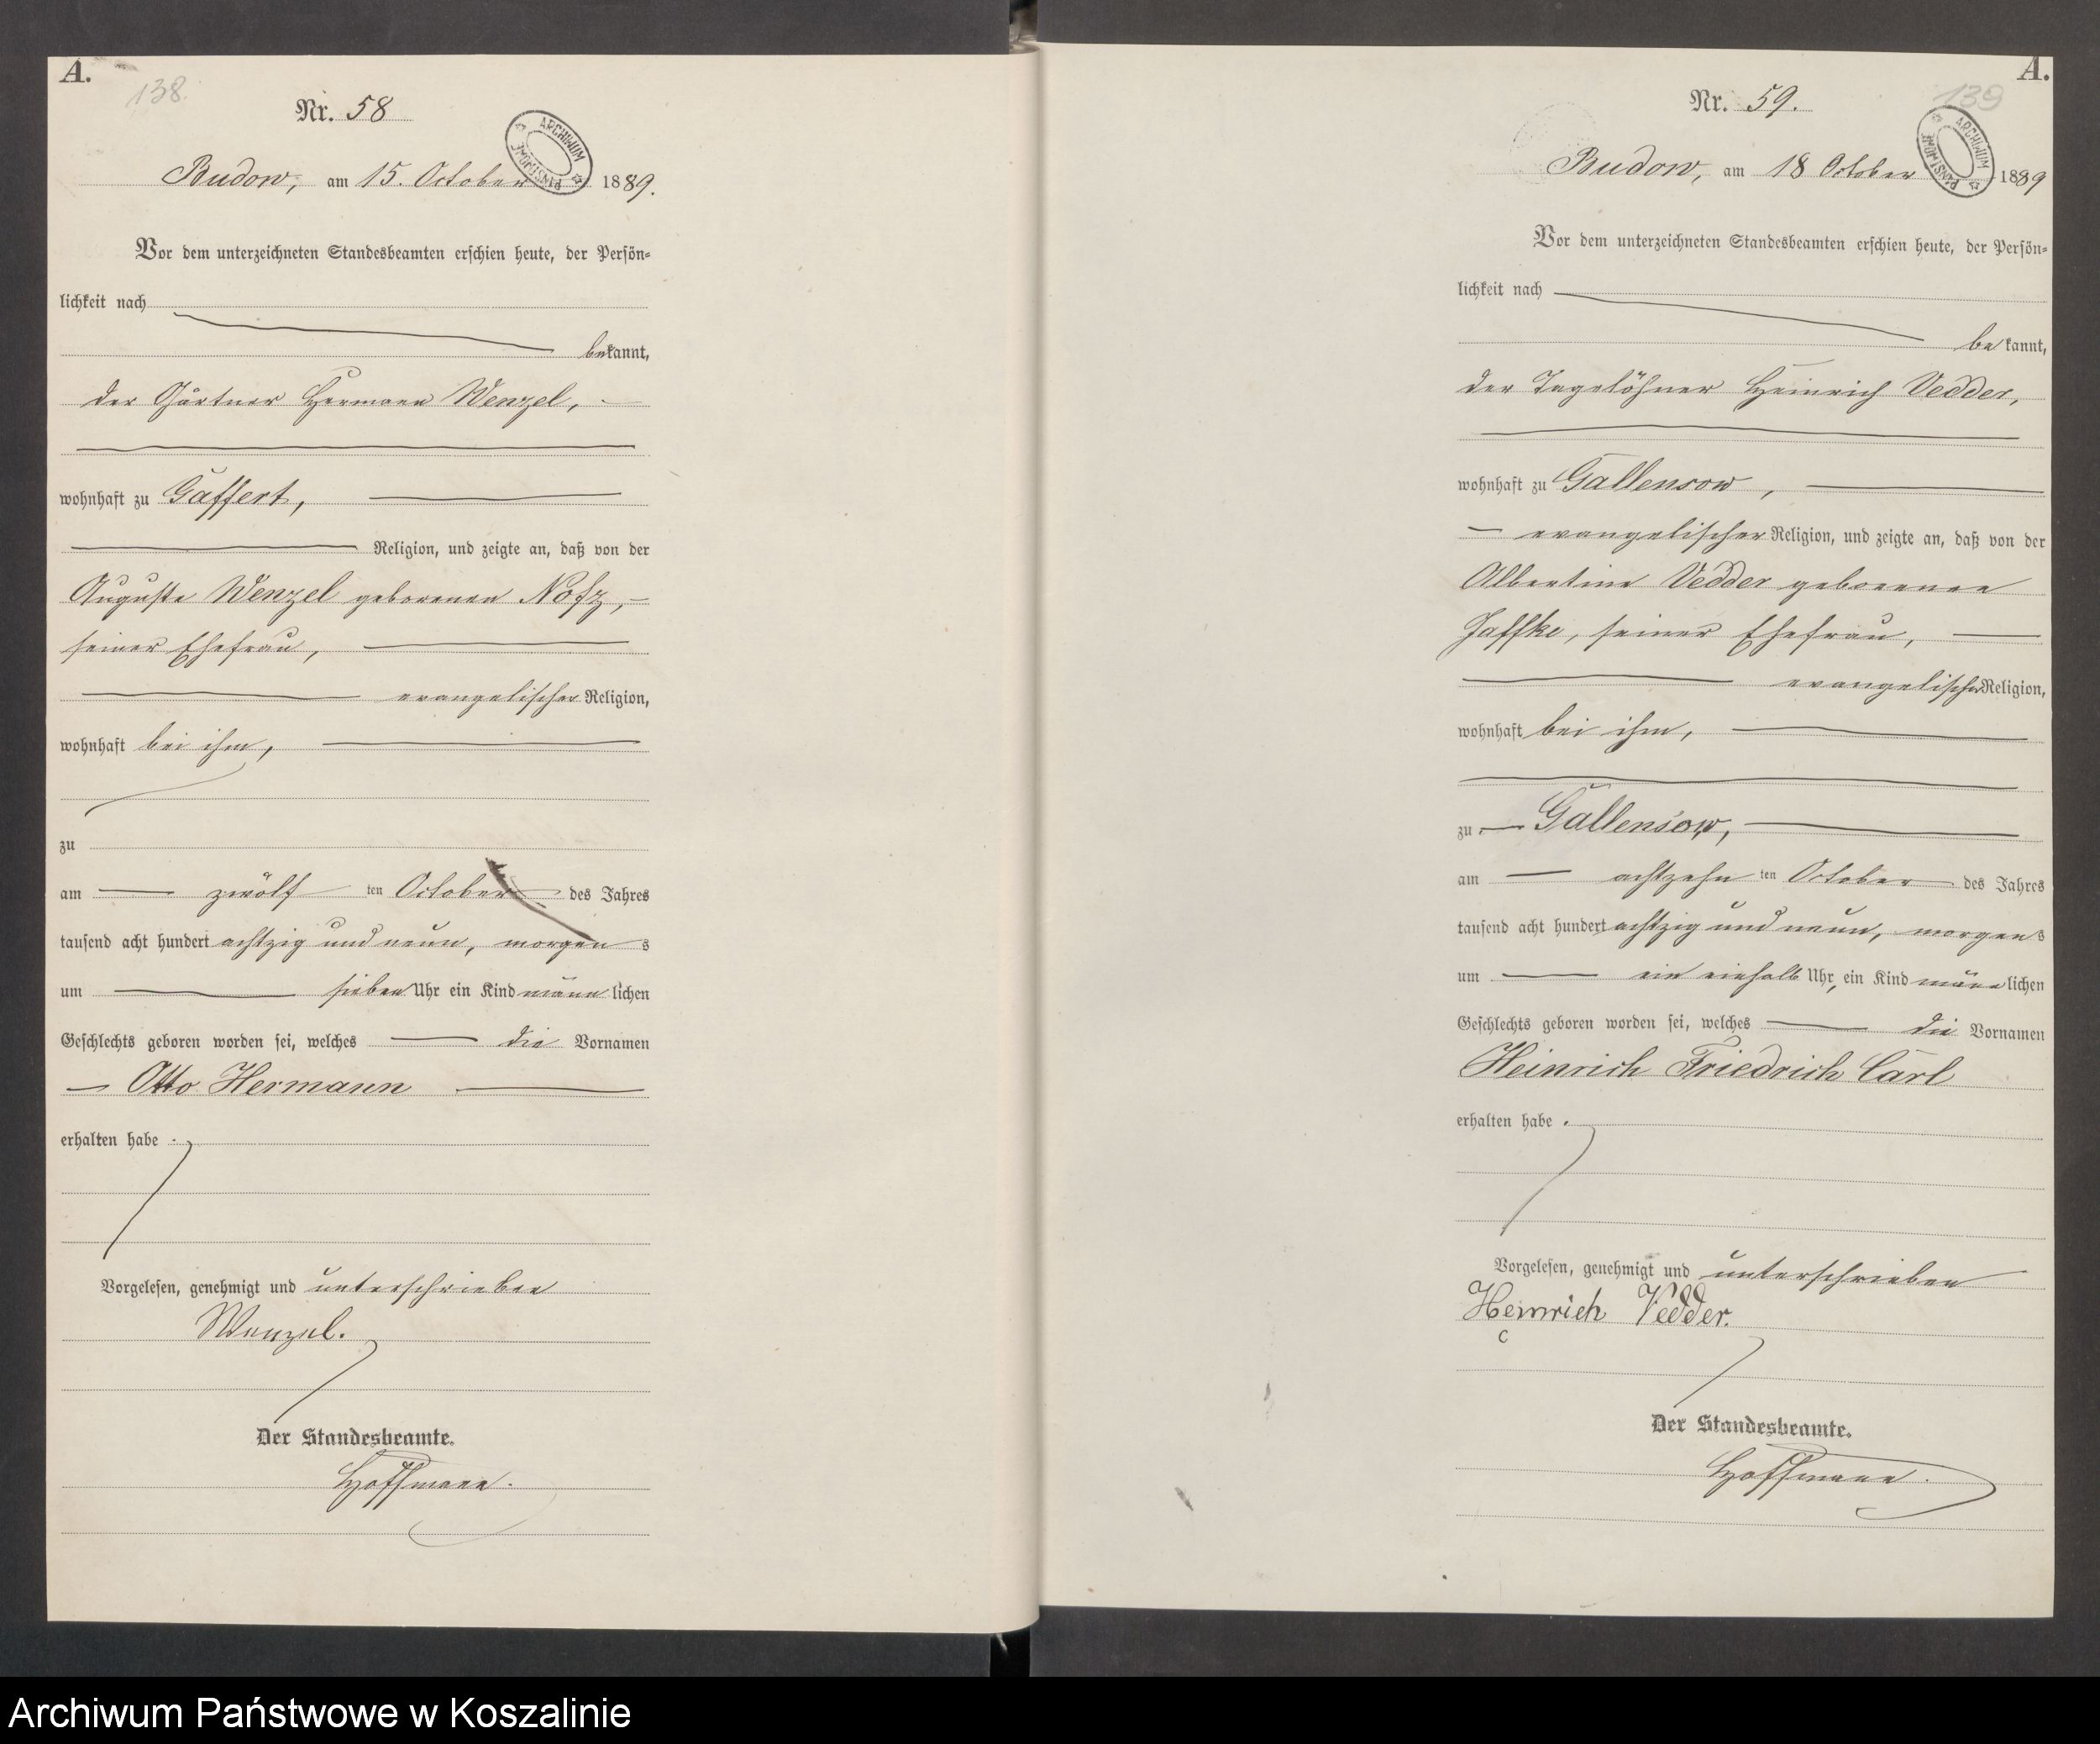 A.
138.
Nr. 58
ARCHIWUM PAŃSTWOWE
Budow, am 15. October 1889.
Vor dem unterzeichneten Standesbeamten erschien heute, der Persön-
lichkeit nach
bekannt,
der Gärtner Hermann Wenzel,
wohnhaft zu Gaffert,
Religion, und zeigte an, daß von der
Auguste Wenzel geborenen Nofz,
seiner Ehefrau,
evangelischer Religion,
wohnhaft bei ihm,
zu
am zwölf ten October des Jahres
tausend acht hundert achtzig und neun, morgens
um sieben Uhr ein Kind männlichen
Geschlechts geboren worden sei, welches die Vornamen
Otto Hermann
erhalten habe.
Vorgelesen, genehmigt und unterschrieben
Wenzel.
Der Standesbeamte.
Hoffmann.
A.
139
Nr. 59.
ARCHIWUM PAŃSTWOWE
Budow, am 18 October 1889
Vor dem unterzeichneten Standesbeamten erschien heute, der Persön-
lichkeit nach
bekannt,
der Tagelöhner Heinrich Vedder,
wohnhaft zu Gallensow,
evangelischer Religion, und zeigte an, daß von der
Albertine Vedder geborenen
Jaffke, seiner Ehefrau,
evangelischer Religion,
wohnhaft bei ihm,
zu Gallensow,
am achtzehn ten October des Jahres
tausend acht hundert achtzig und neun, morgens
um ein einhalb Uhr, ein Kind männlichen
Geschlechts geboren worden sei, welches die Vornamen
Heinrich Friedrich Carl
erhalten habe.
Vorgelesen, genehmigt und unterschrieben
Heinrich Vedder.
Der Standesbeamte.
Hoffmann.
Archiwum Państwowe w Koszalinie